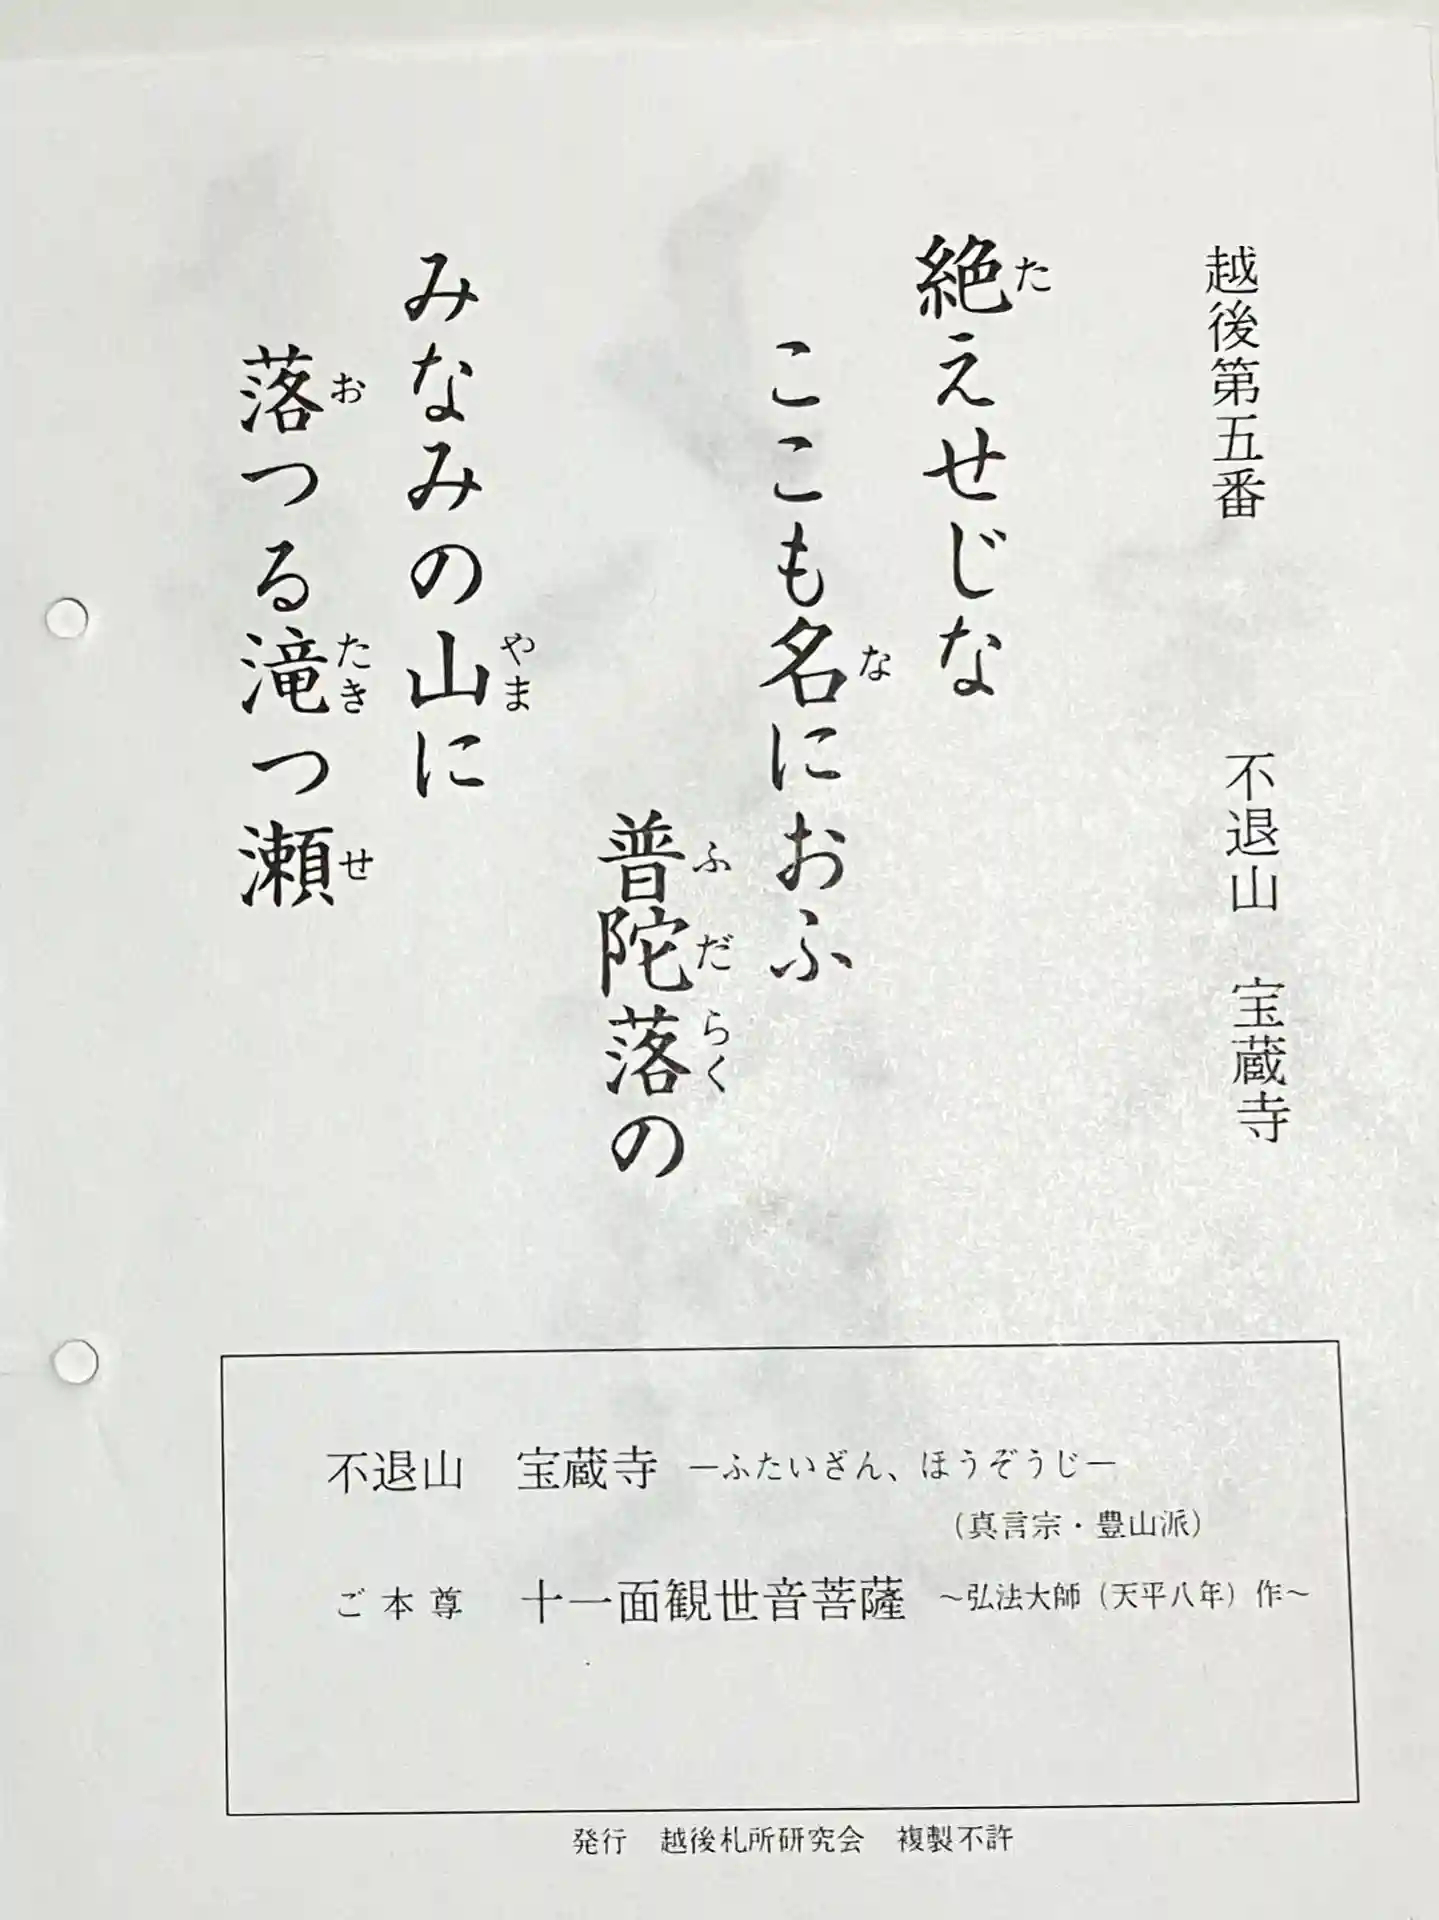 越後第五番　不退山　宝蔵寺
絶えせじな
た
ここも名におふ
な
普陀落の
ふだらく
みなみの山に
やま
落つる滝つ瀬
お　たき　せ
不退山　宝蔵寺　―ふたいざん、ほうぞうじ―
（真言宗・豊山派）
ご本尊　十一面観世音菩薩　～弘法大師（天平八年）作～
発行　越後札所研究会　複製不許